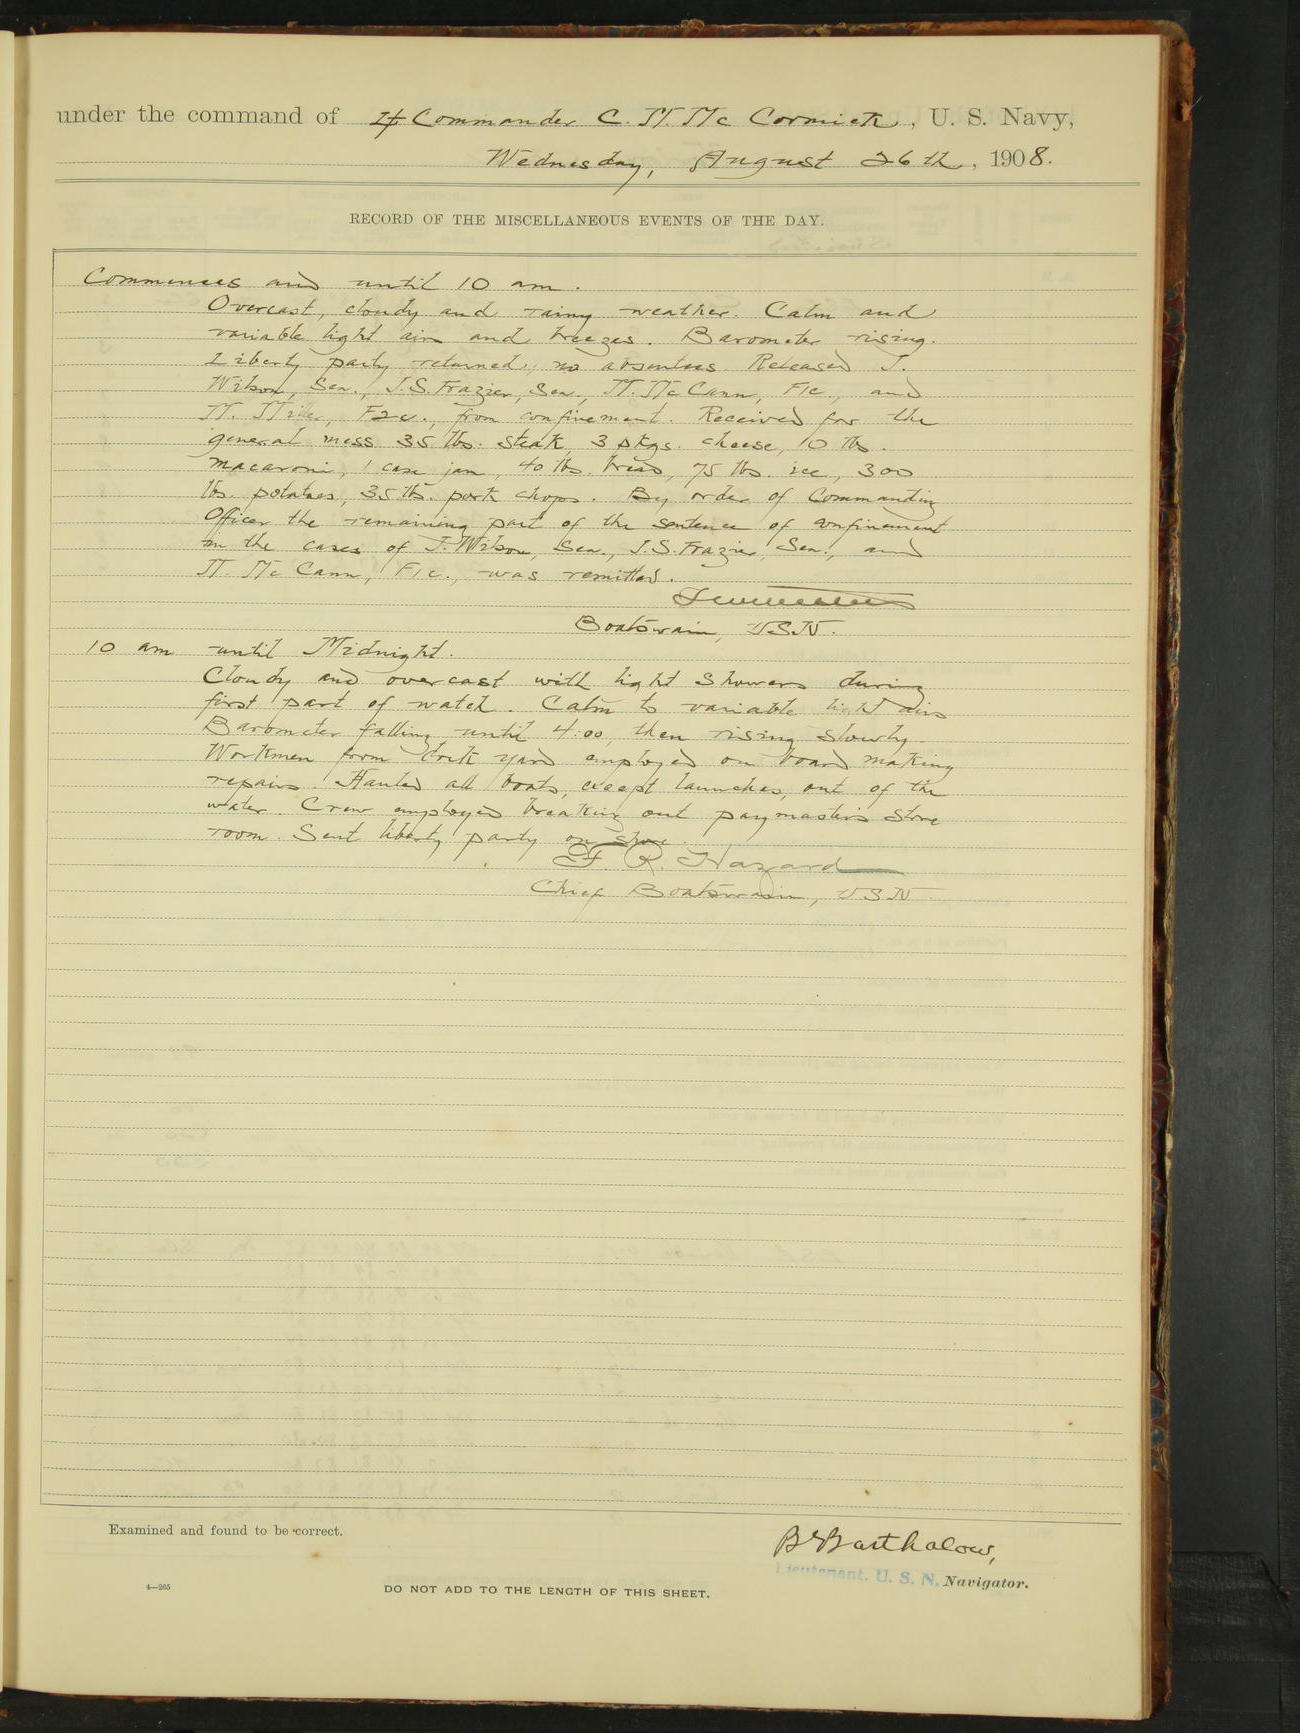 under the command of Lt Commander C. M. Mc Cormick, U. S. Navy,
Wednesday, August 26th, 1908.
RECORD OF THE MISCELLANEOUS EVENTS OF THE DAY.
Commences and until 10 am.
Overcast, cloudy and rainy weather. Calm and
variable light airs and breezes. Barometer rising.
Liberty party returned, no absentees. Released J.
Wilson, Sea., J.S. Frazier, Sea., M. McCann, F1c., and
M. F2c., from confinement. Received for the
general mess 35 lbs. steak, 3 pkgs. cheese, 10 lbs.
macaroni, 1 case jam, 40 lbs. bread, 75 lbs. ice, 300
lbs. potatoes, 35 lbs. pork chops. By order of Commanding
Officer the remaining part of the sentence of confinement
in the cases of J. Wilson, Sea., J.S. Frazier, Sea., and
M. Mc Cann, F1c., was remitted.
Boatswain, USN.
10 am until Midnight.
Cloudy and overcast with light showers during
first part of watch. Calm to variable light airs
Barometer falling until 4:00, then rising slowly.
Workmen from dock yard employed on board making
repairs. Hauled all boats, except launches, out of the
water. Crew employed breaking out paymasters store
room. Sent liberty party on shore.
F. R. Hazard
Chief Boatswain, USN
Examined and found to be correct.
Barthalow,
Lieutenant, U. S. N. Navigator.
4—265
DO NOT ADD TO THE LENGTH OF THIS SHEET.